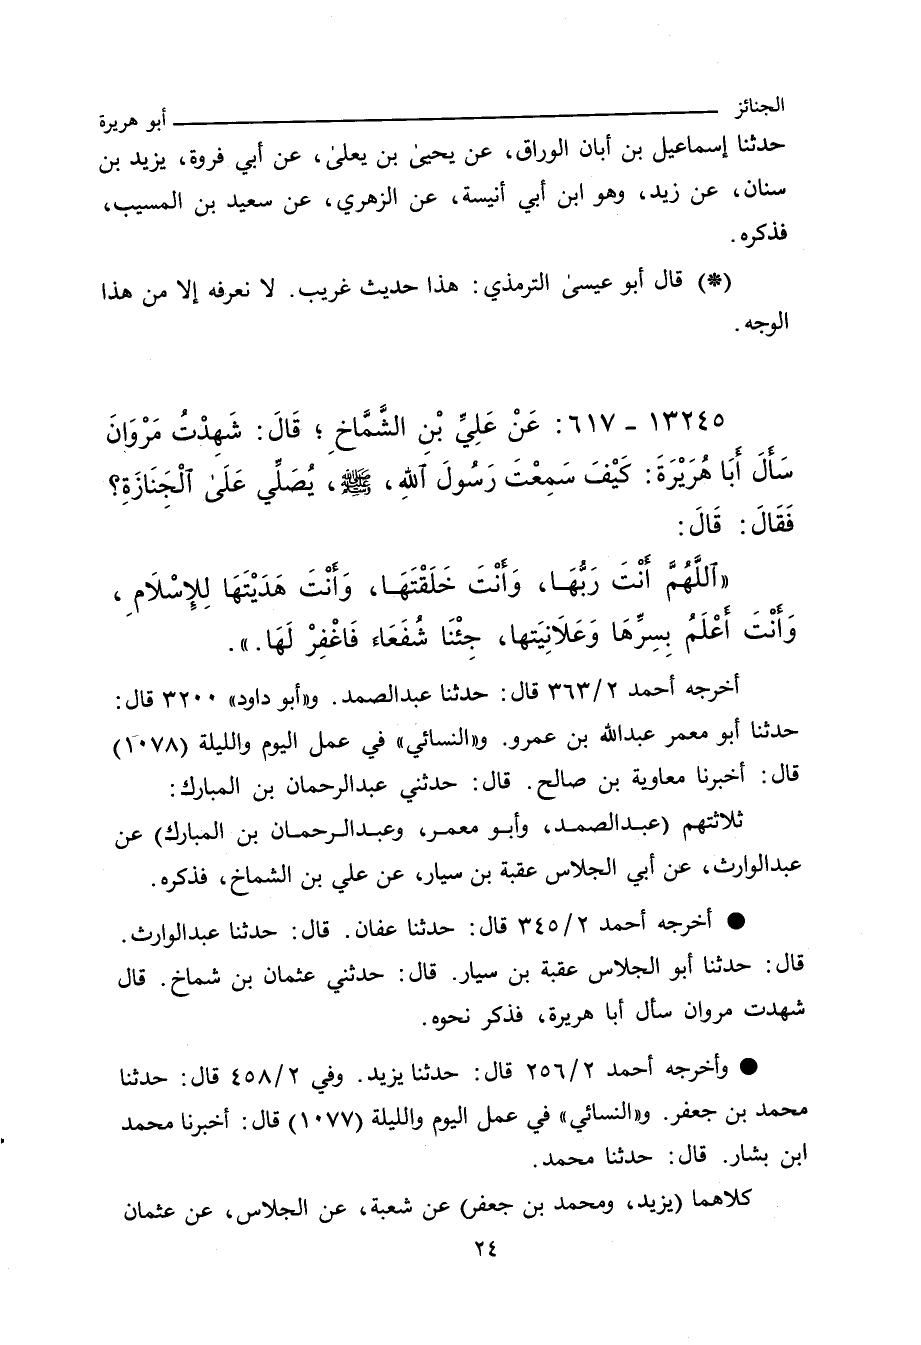 الجنائز ـــــــــــــــــــــــــــــــــــــــــ أبو هريرة
حدثنا إسماعيل بن أبان الوراق، عن يحيىٰ بن يعلىٰ، عن أبي فروة، يزيد بن
سنان، عن زيد، وهو ابن أبي أنيسة، عن الزهري، عن سعيد بن المسيب،
فذكره.
(*) قال أبو عيسىٰ الترمذي: هذا حديث غريب. لا نعرفه إلا من هذا
الوجه.
١٣٢٤٥ ـ ٦١٧: عَنْ عَلِيِّ بْنِ الشَّمَّاخِ؛ قَالَ: شَهِدْتُ مَرْوَانَ
سَأَلَ أَبَا هُرَيْرَةَ: كَيْفَ سَمِعْتَ رَسُولَ ٱللهِ، ﷺ، يُصَلِّي عَلَىٰ ٱلْجَنَازَةِ؟
فَقَالَ: قَالَ:
«ٱللَّهُمَّ أَنْتَ رَبُّهَـا، وَأَنْتَ خَلَقْتَهَـا، وَأَنْتَ هَدَيْتَهَا لِلإِسْلَامِ،
وَأَنْتَ أَعْلَمُ بِسِرِّهَا وَعَلَانِيَتها، جِئْنَا شُفَعَاء فَاغْفِرْ لَهَا.».
أخرجه أحمد ٣٦٣/٢ قال: حدثنا عبدالصمد. و«أبو داود» ٣٢٠٠ قال:
حدثنا أبو معمر عبدالله بن عمرو. و«النسائي» في عمل اليوم والليلة (١٠٧٨)
قال: أخبرنا معاوية بن صالح. قال: حدثني عبدالرحمان بن المبارك:
ثلاثتهم (عبـدالصمـد، وأبـو معمـر، وعبـدالـرحمـان بن المبارك) عن
عبدالوارث، عن أبي الجلاس عقبة بن سيار، عن علي بن الشماخ، فذكره.
● أخرجه أحمد ٣٤٥/٢ قال: حدثنا عفان. قال: حدثنا عبدالوارث.
قال: حدثنا أبو الجلاس عقبة بن سيار. قال: حدثني عثمان بن شماخ. قال
شهدت مروان سأل أبا هريرة، فذكر نحوه.
● وأخرجه أحمد ٢٥٦/٢ قال: حدثنا يزيد. وفي ٤٥٨/٢ قال: حدثنا
محمد بن جعفر. و«النسائي» في عمل اليوم والليلة (١٠٧٧) قال: أخبرنا محمد
ابن بشار. قال: حدثنا محمد.
كلاهما (يزيد، ومحمد بن جعفر) عن شعبة، عن الجلاس، عن عثمان
٢٤